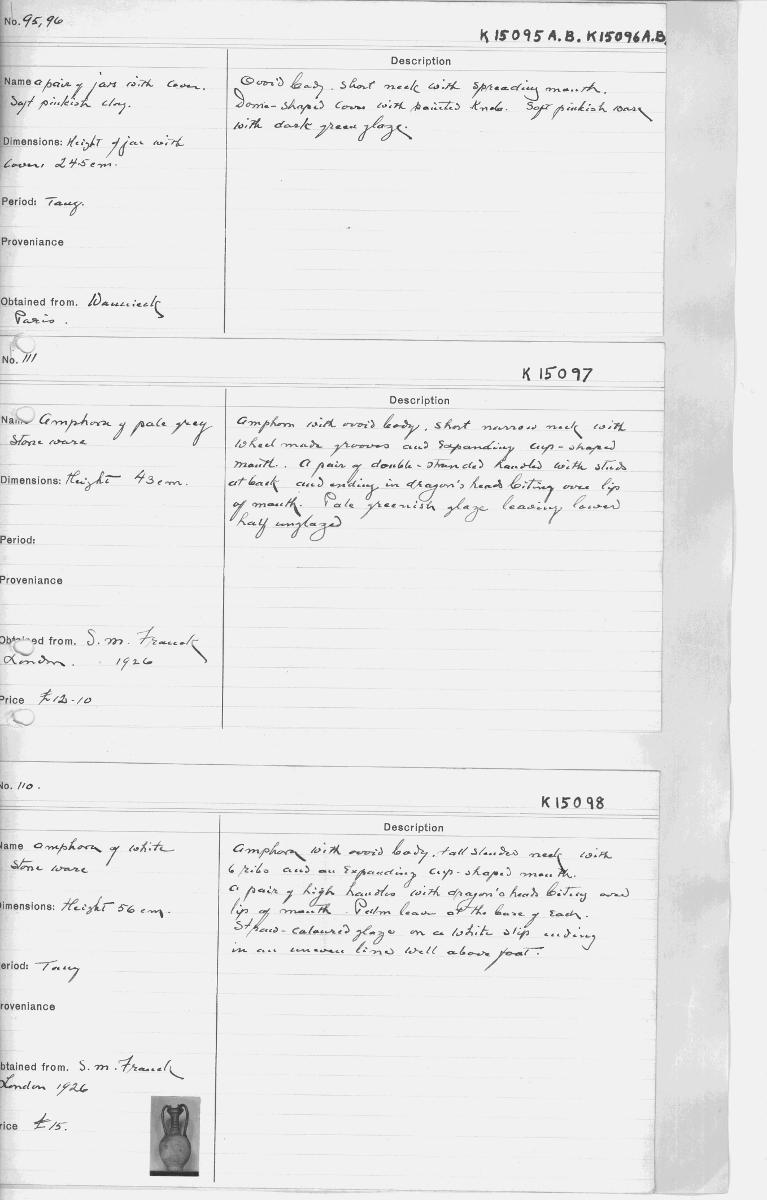 No. 95, 96
K 15095 A.B. K15096 A.B.
Description
Name a pair of jars with cover.
Soft pinkish clay.
Dimensions: Height of jar with
cover: 24.5 cm.
Period: Tang.
Proveniance
Obtained from. Wannieck
Paris.
Ovoid body. Short neck with spreading mouth.
Dome-shaped cover with pointed Knob. Soft pinkish ware
with dark green glaze.
No. 111
K 15097
Description
Name Amphora of pale grey
Stone ware
Dimensions: Height 43 cm.
Period:
Proveniance
Obtained from. S. M. Franck
London. 1926
Price £12-10
Amphora with ovoid body, short narrow neck with
wheel made grooves and expanding cup-shaped
mouth. A pair of double-stranded handles with studs
at back and ending in dragon's heads biting over lip
of mouth. Pale greenish glaze leaving lower
half unglazed
No. 110.
K15098
Description
Name Amphora of white
Stone ware
Dimensions: Height 56 cm.
Period: Tang
Proveniance
Obtained from. S. M. Franck
London 1926
Price £15.
Amphora with ovoid body, tall slender neck with
6 ribs and an expanding cup-shaped mouth.
A pair of high handles with dragon's heads biting over
lip of mouth. Palm leave at the base of each.
Straw-coloured glaze on a white slip ending
in an uneven line well above foot.